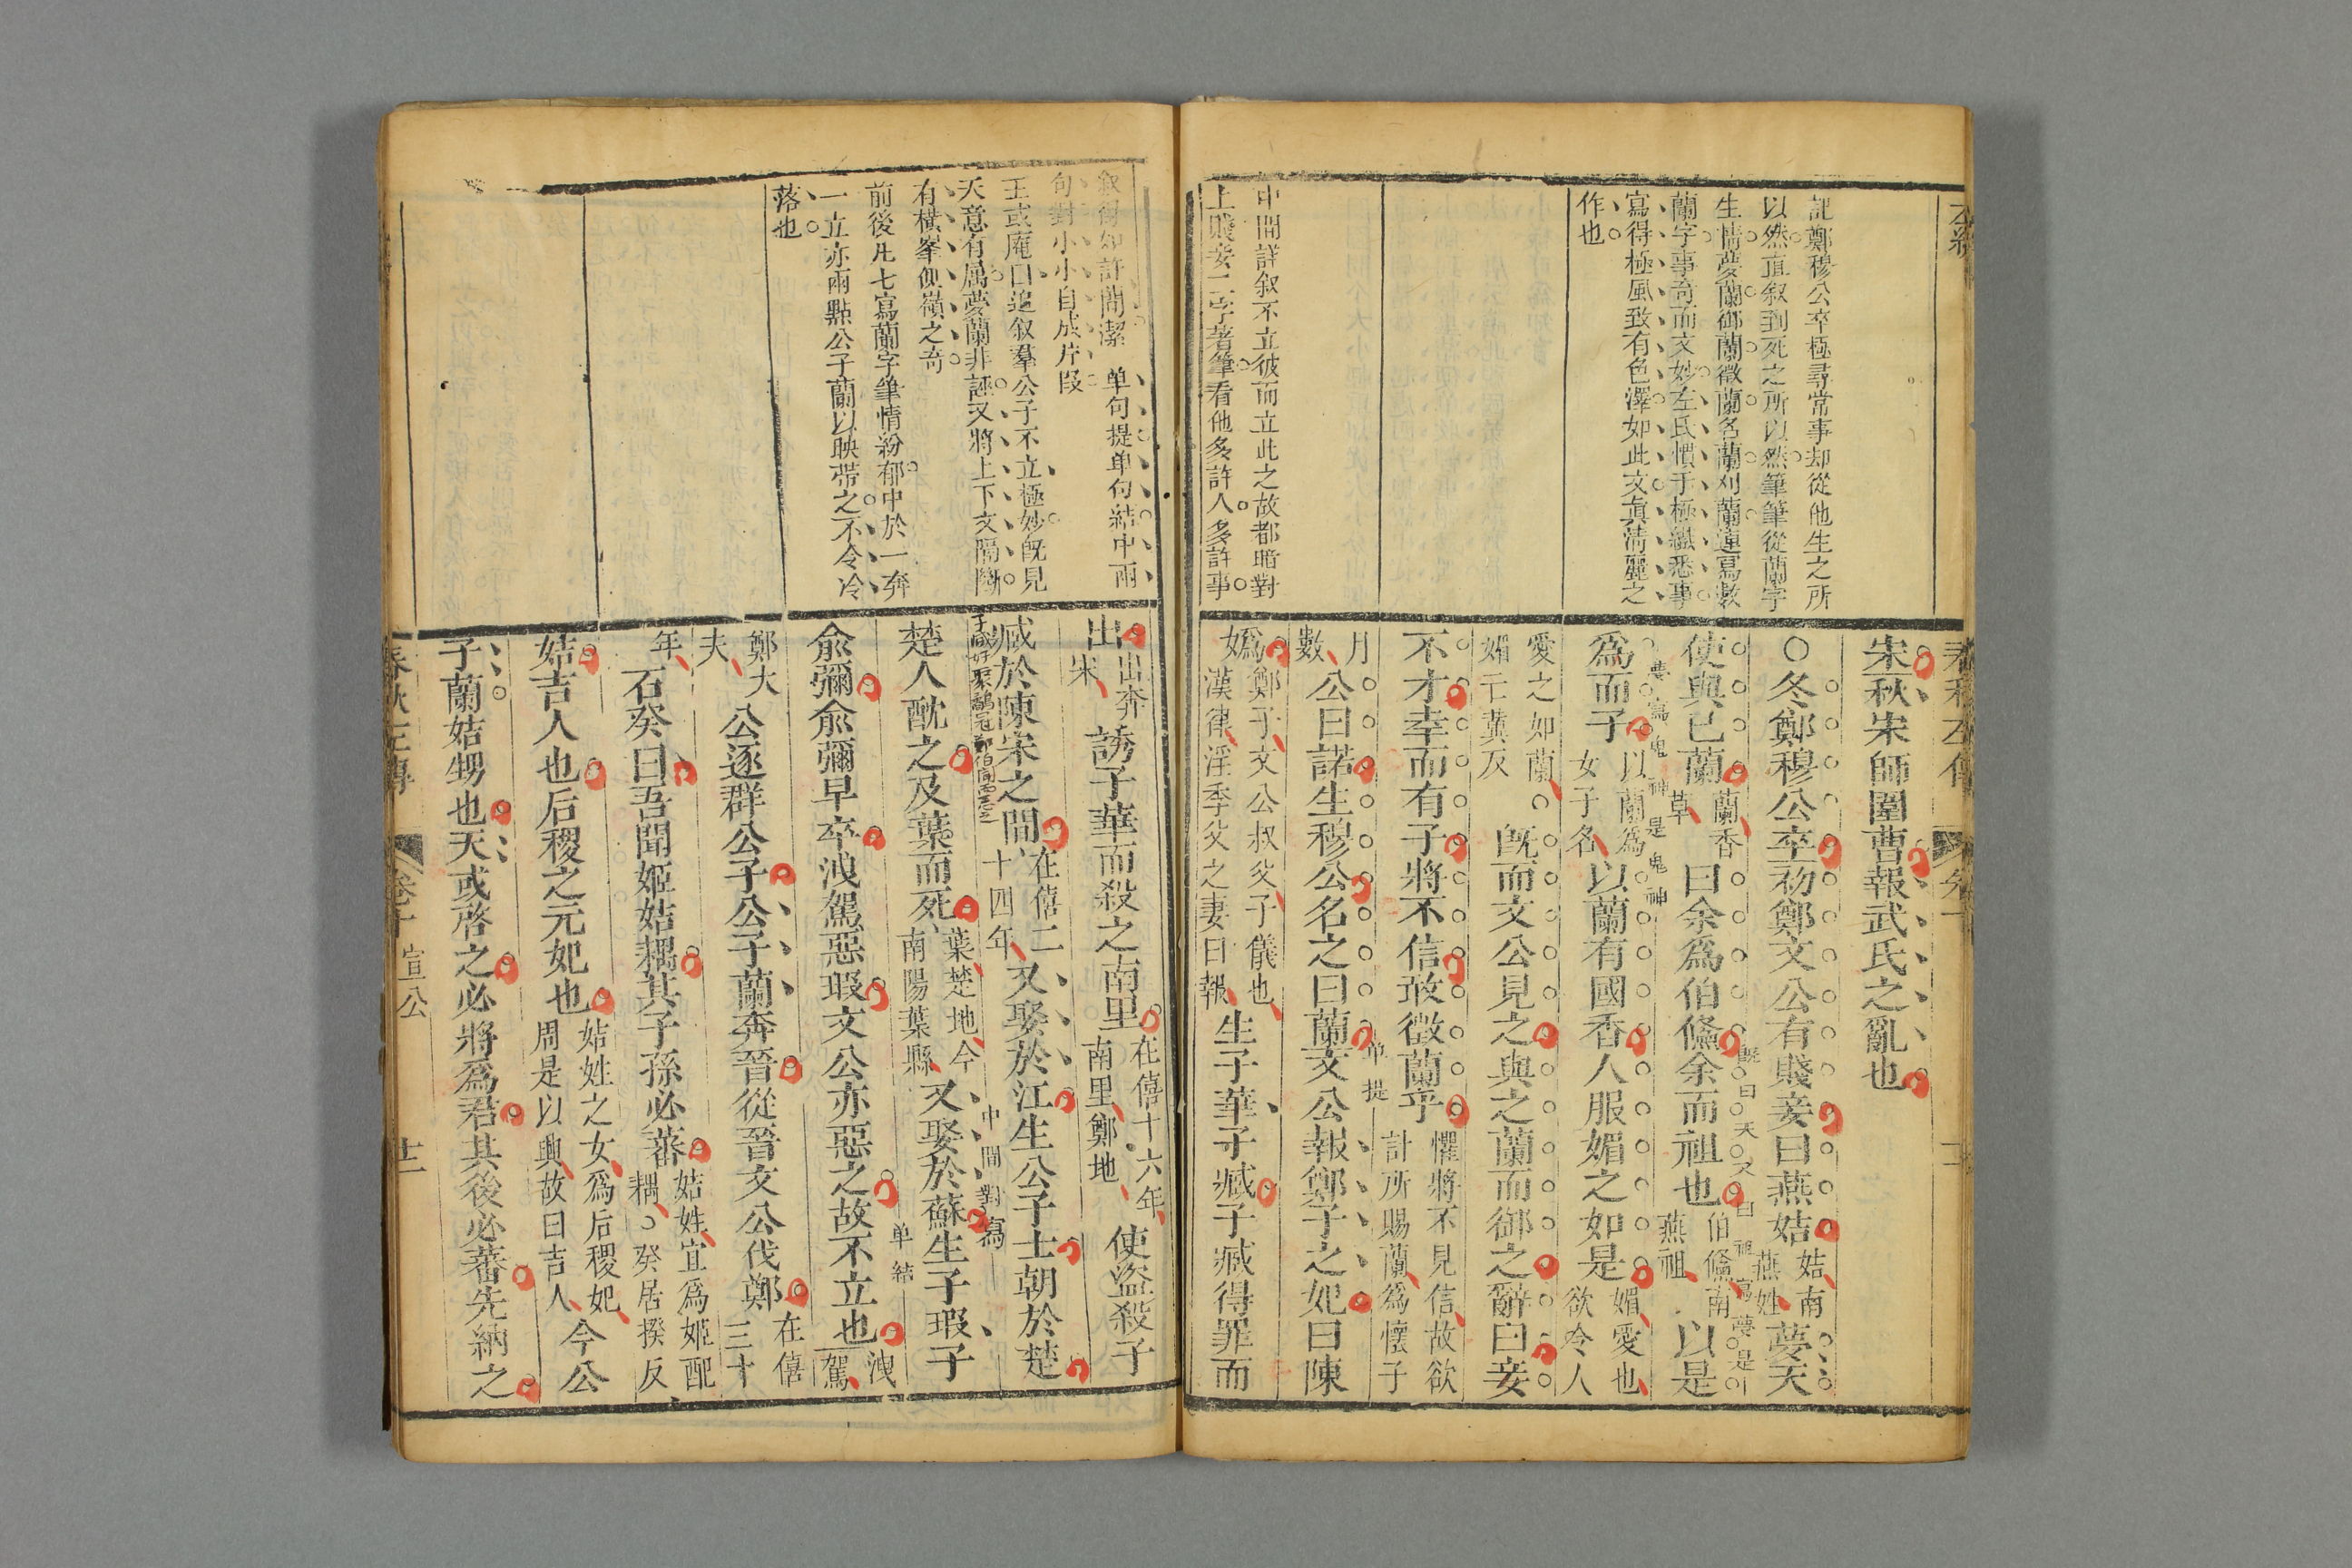 左繡
記鄭穆公卒極尋常事却從他生之所
以然直叙到死之所以然筆筆從蘭字
生情夢蘭御蘭徵蘭名蘭刈蘭連寫數
蘭字事奇而文妙左氏慣于極
寫得極風致有色澤如此文真清麗之
作也
中間詳叙不立彼而立此之故都暗對
上賤妾二字著筆看他多許人多許事
春秋左傳
宋秋宋師圍曹報武氏之亂也
○冬鄭穆公卒初鄭文公有賤妾曰燕姞姞南
燕姓夢天
既曰天又曰祖寫夢是
使與已蘭蘭香
草曰余爲伯鯈余而祖也伯鯈南
燕祖以是
夢寫鬼神是鬼神
爲而子以蘭爲
女子名以蘭有國香人服媚之如是媚愛也
欲令人
愛之如蘭
媚亡冀反旣而文公見之與之蘭而御之辭曰妾
不才幸而有子將不信敢徵蘭乎懼將不見信故欲
計所賜蘭爲懷子
單提
月
數公曰諾生穆公名之曰蘭文公報鄭子之妃曰陳
嬀鄭子文公叔父子儀也
漢律淫季父之妻曰報生子華子臧子臧得罪而
叙得如許簡潔 单句提单句結中兩
句對小小自成片段
王或庵曰追叙羣公子不立極妙旣見
天意有属夢蘭非誣又將上下文隔斷
有橫峯側嶺之奇
前後凡七寫蘭字筆情紛郁中於一奔
一立亦兩點公子蘭以映帶之不令冷
落也
出出奔
宋誘子華而殺之南里在僖十六年
南里鄭地使盜殺子
臧於陳宋之間在僖二
十四年又娶於江生公子士朝於楚
子臧好聚鷸冠鄭伯聞而惡之
中間對寫
楚人酖之及葉而死葉楚地今
南陽葉縣又娶於蘇生子瑕子
单結
俞彌俞彌早卒洩駕惡瑕文公亦惡之故不立也洩
駕
鄭大
夫公逐群公子公子蘭奔晉從晉文公伐鄭在僖
三十
年石癸曰吾聞姬姞耦其子孫必蕃姞姓宜爲姬配
耦○癸居揆反
姞吉人也后稷之元妃也姞姓之女爲后稷妃
周是以興故曰吉人今公
子蘭姞甥也天或啓之必將爲君其後必蕃先納之
春秋左傳 卷十 宣公 十二